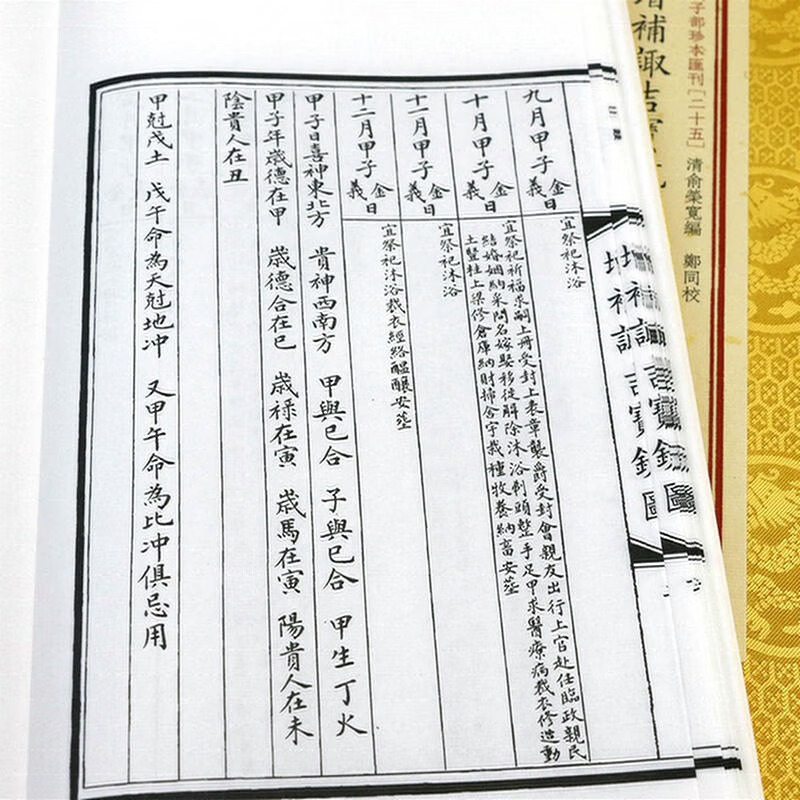 子部珍本匯刊[二十五]
清俞榮寬編 鄭同校
補諏吉寶
九月甲子金義日
宜祭祀沐浴
十月甲子金義日
宜祭祀祈福求嗣上冊受封上表章襲爵受封會親友出行上官赴任臨政親民
結婚姻納采問名嫁娶移徙解除沐浴剃頭整手足甲求醫療病裁衣修造動
土豎柱上梁修倉庫納財掃舍宇栽種牧養納畜安葬
十一月甲子金義日
宜祭祀沐浴
十二月甲子金義日
宜祭祀沐浴裁衣經絡醞釀安葬
甲子日喜神東北方 貴神西南方 甲與巳合 子與巳合 甲生丁火
甲子年歲德在甲 歲德合在巳 歲祿在寅 歲馬在寅 陽貴人在未
陰貴人在丑
甲尅戊土 戊午命為天尅地冲 又甲午命為比冲俱忌用